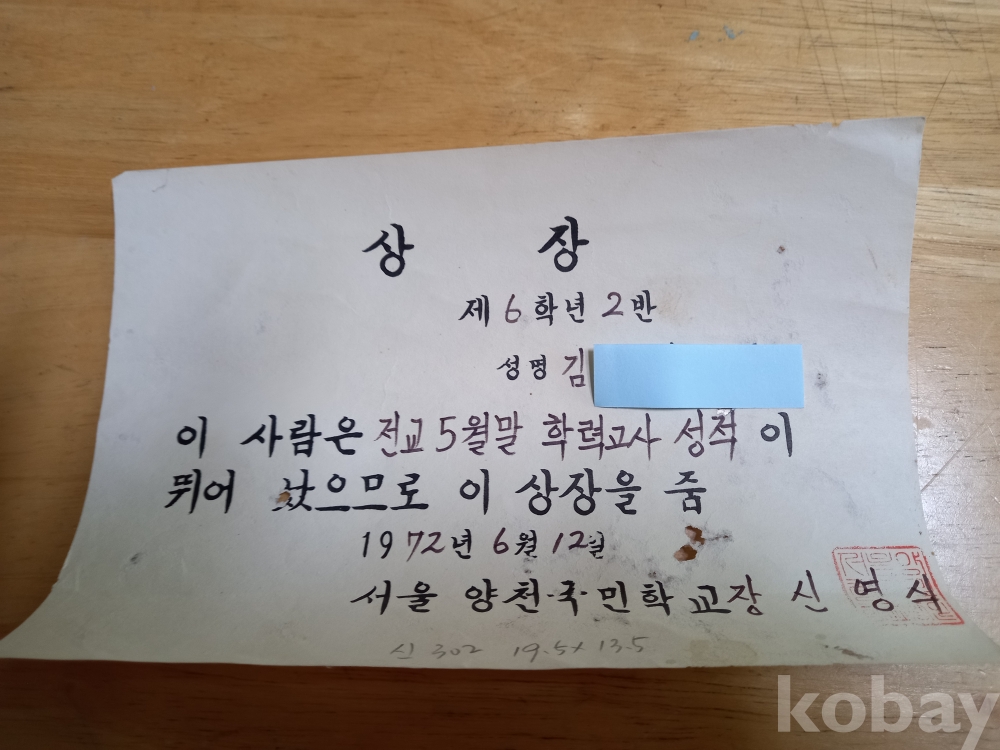 상 장
제 6 학년 2 반
성명 김
이 사람은 전교 5월말 학력고사 성적 이
뛰어 났으므로 이 상장을 줌
1972년 6월 12일
서울 양천·국·민학교장 신 영 식
신 302 19.5x 13.5
kobay